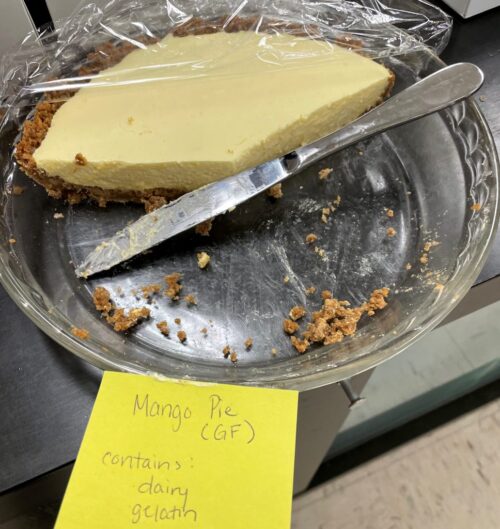 Mango Pie
(GF)
contains:
dairy
gelatin